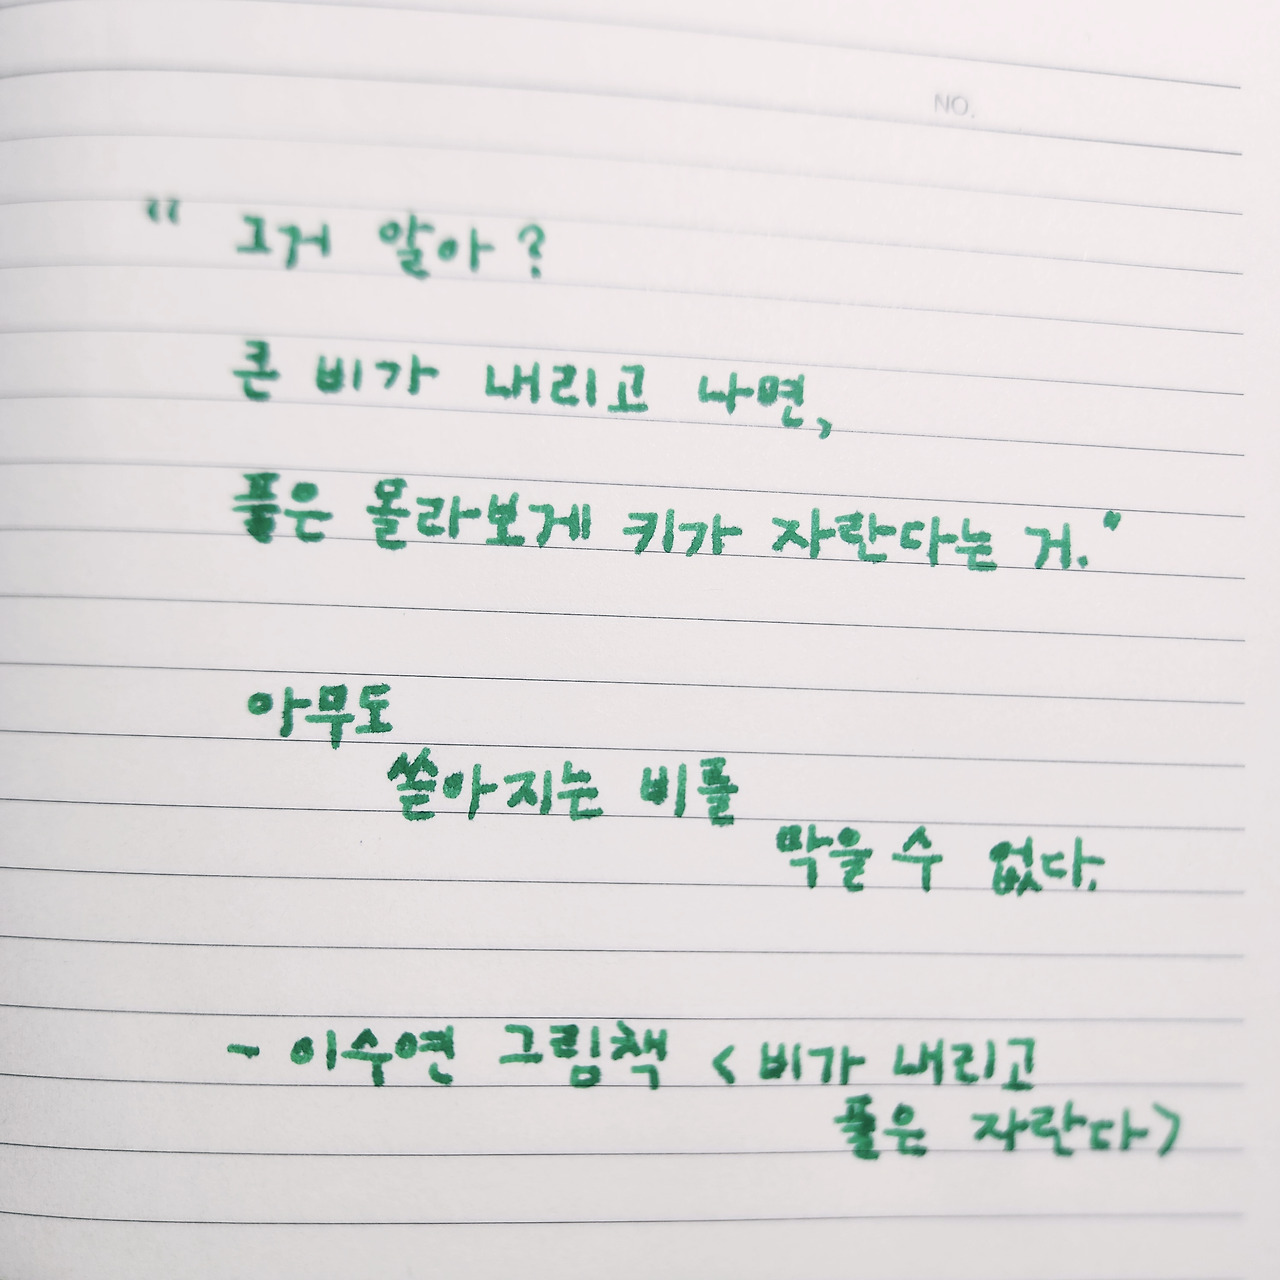 NO.
" 그거 알아?
큰 비가 내리고 나면,
풀은 몰라보게 키가 자란다는 거."
아무도
쏟아지는 비를
막을 수 없다.
- 이수연 그림책 <비가 내리고
풀은 자란다>